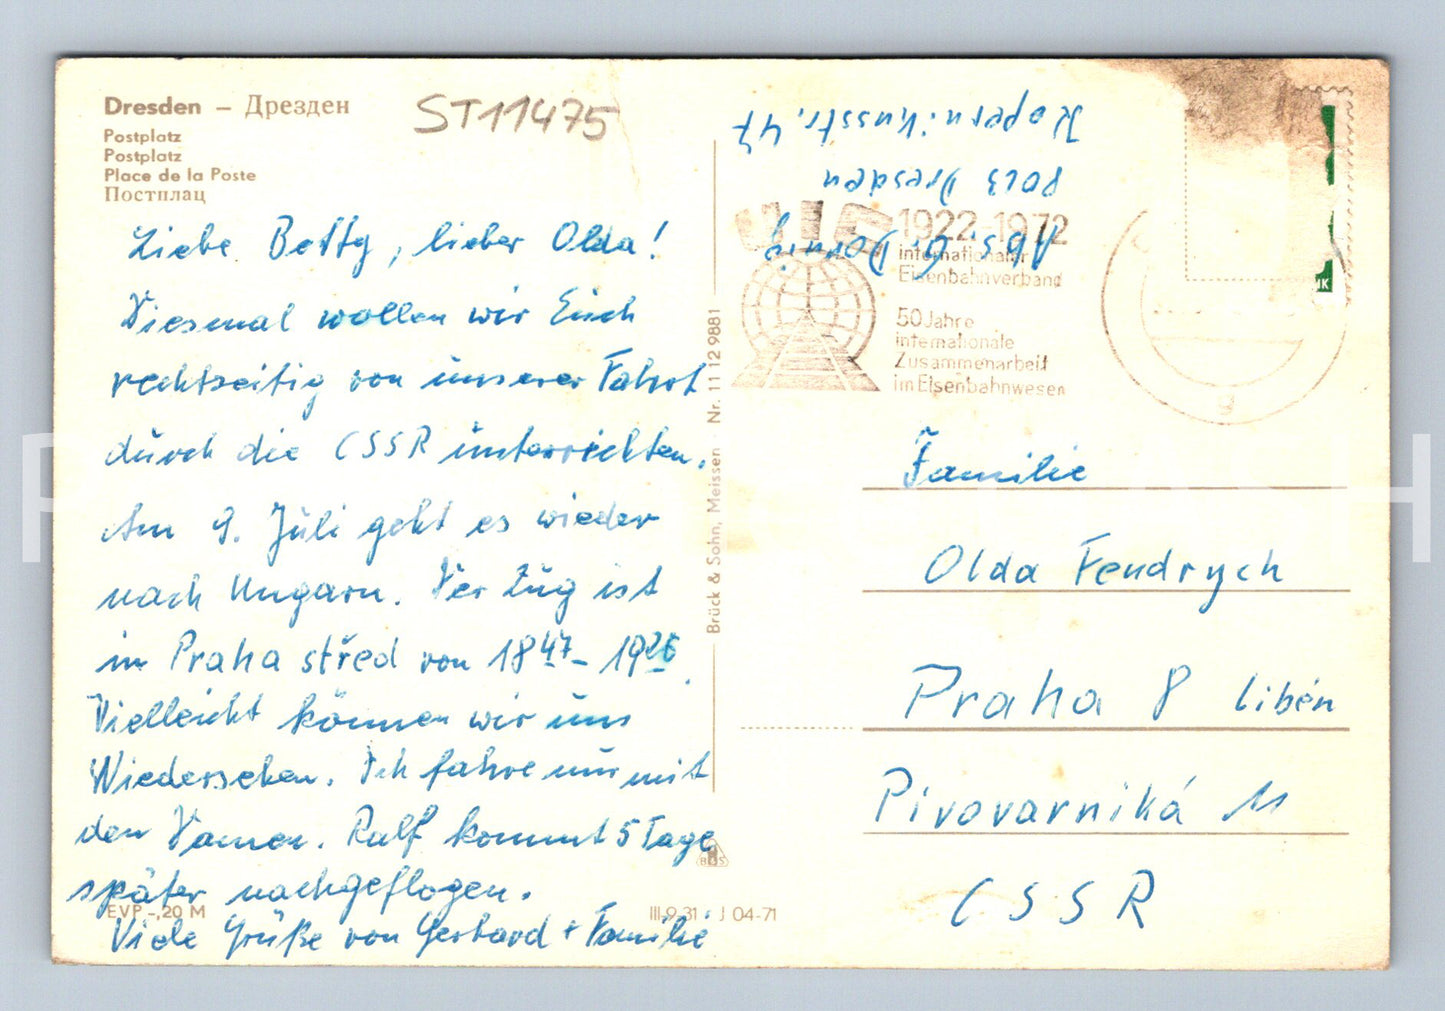 Dresden – Дрезден
Postplatz
Postplatz
Place de la Poste
Постплац
ST11475
Liebe Betty, lieber Olda!
Diesmal wollen wir Euch
rechtzeitig von unserer Fahrt
durch die CSSR unterrichten.
Am 9. Juli geht es wieder
nach Ungarn. Der Zug ist
in Praha střed von 18 47 – 19 26.
Vielleicht können wir uns
Wiedersehen. Ich fahre nur mit
den Damen. Ralf kommt 5 Tage
später nachgeflogen.
Viele Grüße von Gerhard + Familie
EVP -,20 M
III-9-31 · J 04-71
Brück & Sohn, Meissen · Nr. 11 12 9881
B&S
Abs. G. Dornig
8023 Dresden
Kopernikusstr. 47
UIC
1922-1972
internationaler
Eisenbahnverband
50 Jahre
internationale
Zusammenarbeit
im Eisenbahnwesen
g
Familie
Olda Fendrych
Praha 8 Libén
Pivovarniká 11
CSSR